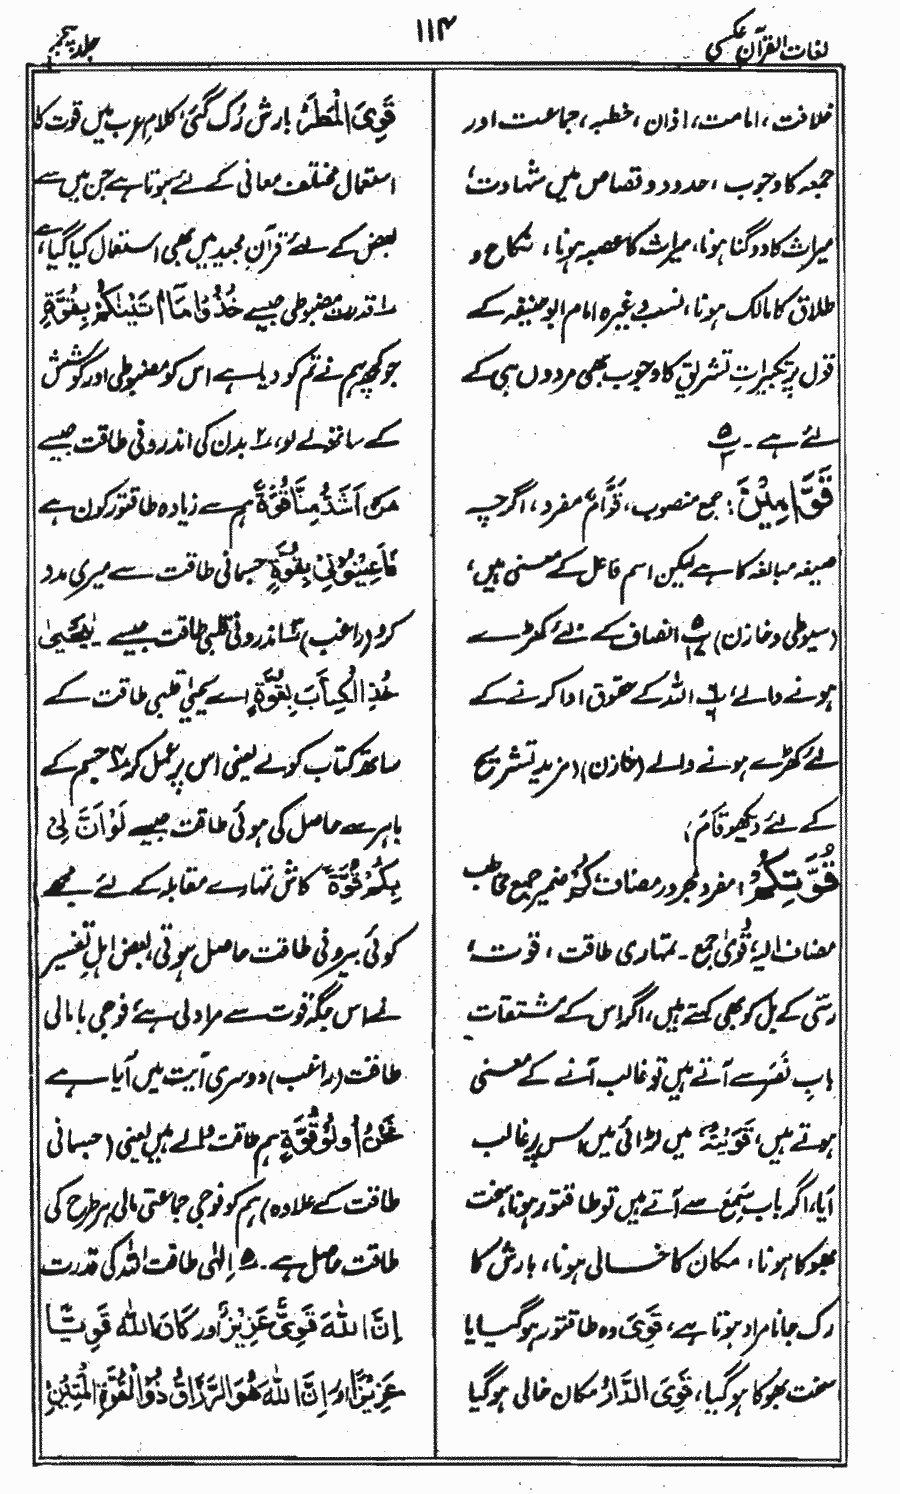 لغات القرآن عکسی
۱۱۴
جلد پنجم
خلافت، امامت، اذان، خطبہ، جماعت اور
جمعہ کا وجوب، حدود و قصاص میں شہادت،
میراث کا دوگنا ہونا، میراث کا عصبہ ہونا، نکاح و
طلاق کا مالک ہونا، نسب وغیرہ امام ابو حنیفہ کے
قول پر تکبیراتِ تشریق کا وجوب بھی مردوں ہی کے
لئے ہے۔ پ۵
قَوَّامِیْنَ: جمع منصوب، قَوَّامٌ مفرد، اگرچہ
صیغہ مبالغہ کا ہے لیکن اسم فاعل کے معنی میں،
(سیوطی و خازن) پ۵ انصاف کے لئے کھڑے
ہونے والے، پ۶ اللہ کے حقوق ادا کرنے کے
لئے کھڑے ہونے والے (خازن) (مزید تشریح
کے لئے دیکھو قَامَ)
قُوَّتِكُمْ: مفرد مجرور مضاف، كُمْ ضمیر جمع مخاطب
مضاف الیہ، قُوًی جمع۔ تمہاری طاقت، قوت،
رسّی کے بل کو بھی کہتے ہیں، اگر اس کے مشتقات
باب نَصَرَ سے آتے ہیں تو غالب آنے کے معنی
ہوتے ہیں، قَوَیْتُہٗ میں لڑائی میں اس پر غالب
آیا، اگر باب سَمِعَ سے آتے ہیں تو طاقتور ہونا، سخت
بھوکا ہونا، مکان کا خالی ہونا، بارش کا
رک جانا مراد ہوتا ہے، قَوِیَ وہ طاقتور ہوگیا یا
سخت بھوکا ہوگیا، قَوِیَ الدَّارُ مکان خالی ہوگیا
قَوِیَ الْمَطَرُ بارش رُک گئی، کلامِ عرب میں قوت کا
استعمال مختلف معانی کے لئے ہوتا ہے جن میں سے
بعض کے لئے قرآنِ مجید میں بھی استعمال کیا گیا ہے،
۱ قدرت مضبوطی جیسے خُذُوْا مَا اٰتَيْنٰكُمْ بِقُوَّةٍ
جو کچھ ہم نے تم کو دیا ہے اس کو مضبوطی اور کوشش
کے ساتھ لے لو، ۲ بدن کی اندرونی طاقت جیسے
مَنْ اَشَدُّ مِنَّا قُوَّةً ہم سے زیادہ طاقتور کون ہے
فَاَعِيْنُوْنِيْ بِقُوَّةٍ جسمانی طاقت سے میری مدد
کرو، (راغب) ۳ اندرونی قلبی طاقت جیسے يٰيَحْيٰى
خُذِ الْكِتَابَ بِقُوَّةٍ اے یحییٰ قلبی طاقت کے
ساتھ کتاب کو لے یعنی اس پر عمل کر ۴ جسم کے
باہر سے حاصل کی ہوئی طاقت جیسے لَوْ اَنَّ لِيْ
بِكُمْ قُوَّةً کاش تمہارے مقابلہ کے لئے مجھے
کوئی بیرونی طاقت حاصل ہوتی، بعض اہلِ تفسیر
نے اس جگہ قوت سے مراد لی ہے فوجی یا مالی
طاقت (راغب) دوسری آیت میں آیا ہے
نَحْنُ اُولُوْا قُوَّةٍ ہم طاقت والے ہیں یعنی (جسمانی
طاقت کے علاوہ) ہم کو فوجی جماعتی مالی ہر طرح کی
طاقت حاصل ہے۔ ۵ الٰہی طاقت اللہ کی قدرت
اِنَّ اللّٰهَ قَوِيٌّ عَزِيْزٌ اور كَانَ اللّٰهُ قَوِيًّا
عَزِيْزًا اور اِنَّ اللّٰهَ هُوَ الرَّزَّاقُ ذُو الْقُوَّةِ الْمَتِيْنُ